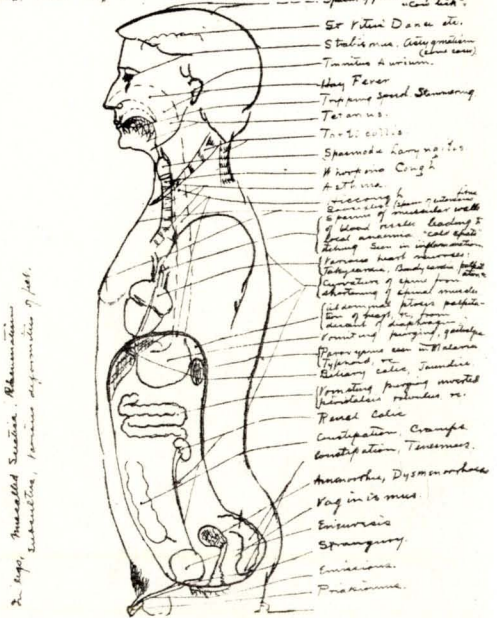 "cow lick".
St Vitus Dance etc.
Strabismus. Astygmatism
(some cases)
Tinnitus Aurium.
Hay Fever
Tripping Speech Stammering
Tetanus.
Torticollis.
Spasmodic Laryngitis
Whooping Cough
Asthma.
Hiccough
Spasms of muscular walls
of blood vessles leading to
local anaemia "cold feet"
itching seen in inflammation
Various heart neuroses.
Curvature of spine from
shortening of spinal muscles
Abdominal ptosis palpita-
tion of heart, etc, from
descent of diaphragm.
Vomiting purging,
Paroxysms seen in Malaria
Typhoid, etc
Biliary colic, Jaundice
Vomiting purging inverted
peristalsis etc.
Renal Colic
Constipation, Cramps
Constipation, Tenesmus.
Amenorrhea, Dysmenorrhoea
Vaginismus.
Enuresis
Strangury.
Emissions.
Priapismus.
In legs, miscalled Sciatica. Rheumatism
various deformities of feet.